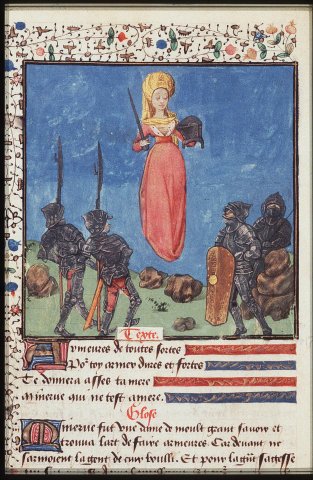 Texte.
Armeures de toutes sortes
Po[ur] toy armer dures et fortes
Te donnera asses ta mere
Minerve qui ne test amere.
Glose
Minerve fut une dame de moult grant savoir et
trouva lart de faire armeures. Car devant ne
sarmoient la gent de cuir boulli. Et pour la grāt sagesse